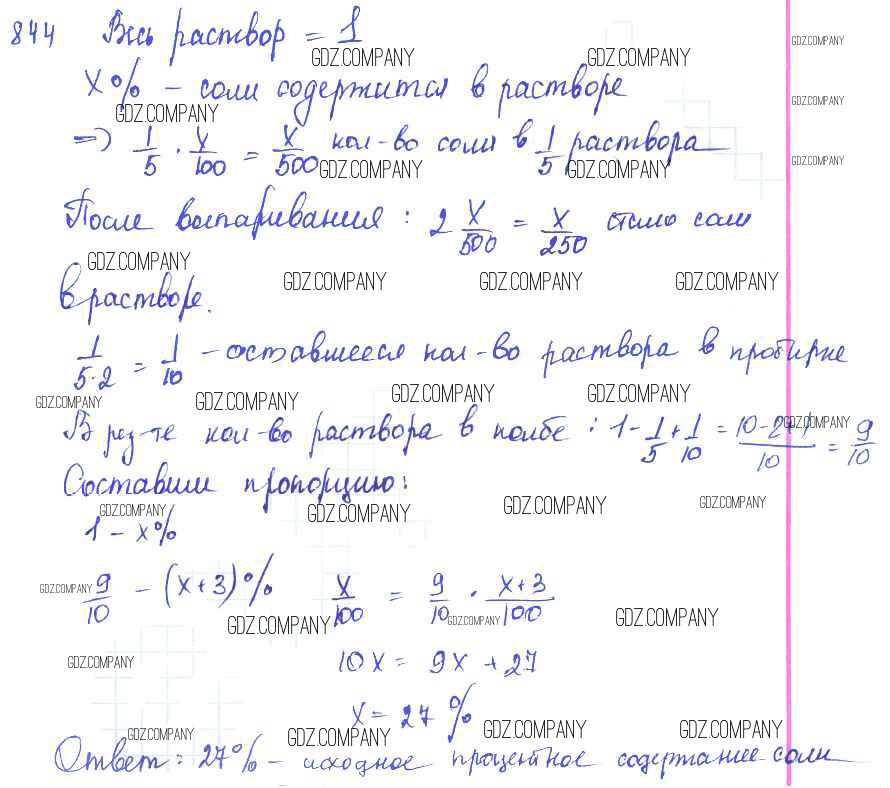 844 Весь раствор = 1
GDZ.COMPANY GDZ.COMPANY GDZ.COMPANY
x% – соли содержится в растворе
GDZ.COMPANY GDZ.COMPANY
=> 1/5 · x/100 = x/500 кол-во соли в 1/5 раствора
GDZ.COMPANY GDZ.COMPANY GDZ.COMPANY
После выпаривания: 2 x/500 = x/250 стало соли
GDZ.COMPANY GDZ.COMPANY GDZ.COMPANY GDZ.COMPANY
в растворе.
1/5·2 = 1/10 – оставшееся кол-во раствора в пробирке
GDZ.COMPANY GDZ.COMPANY GDZ.COMPANY GDZ.COMPANY GDZ.COMPANY
В рез-те кол-во раствора в колбе: 1 - 1/5 + 1/10 = 10-2+1/10 = 9/10
Составим пропорцию:
GDZ.COMPANY GDZ.COMPANY GDZ.COMPANY GDZ.COMPANY
1 – x%
9/10 – (x+3)% x/100 = 9/10 · x+3/100
GDZ.COMPANY GDZ.COMPANY GDZ.COMPANY GDZ.COMPANY
10x = 9x + 27
GDZ.COMPANY
x = 27 %
GDZ.COMPANY GDZ.COMPANY GDZ.COMPANY GDZ.COMPANY
Ответ: 27% – исходное процентное содержание соли